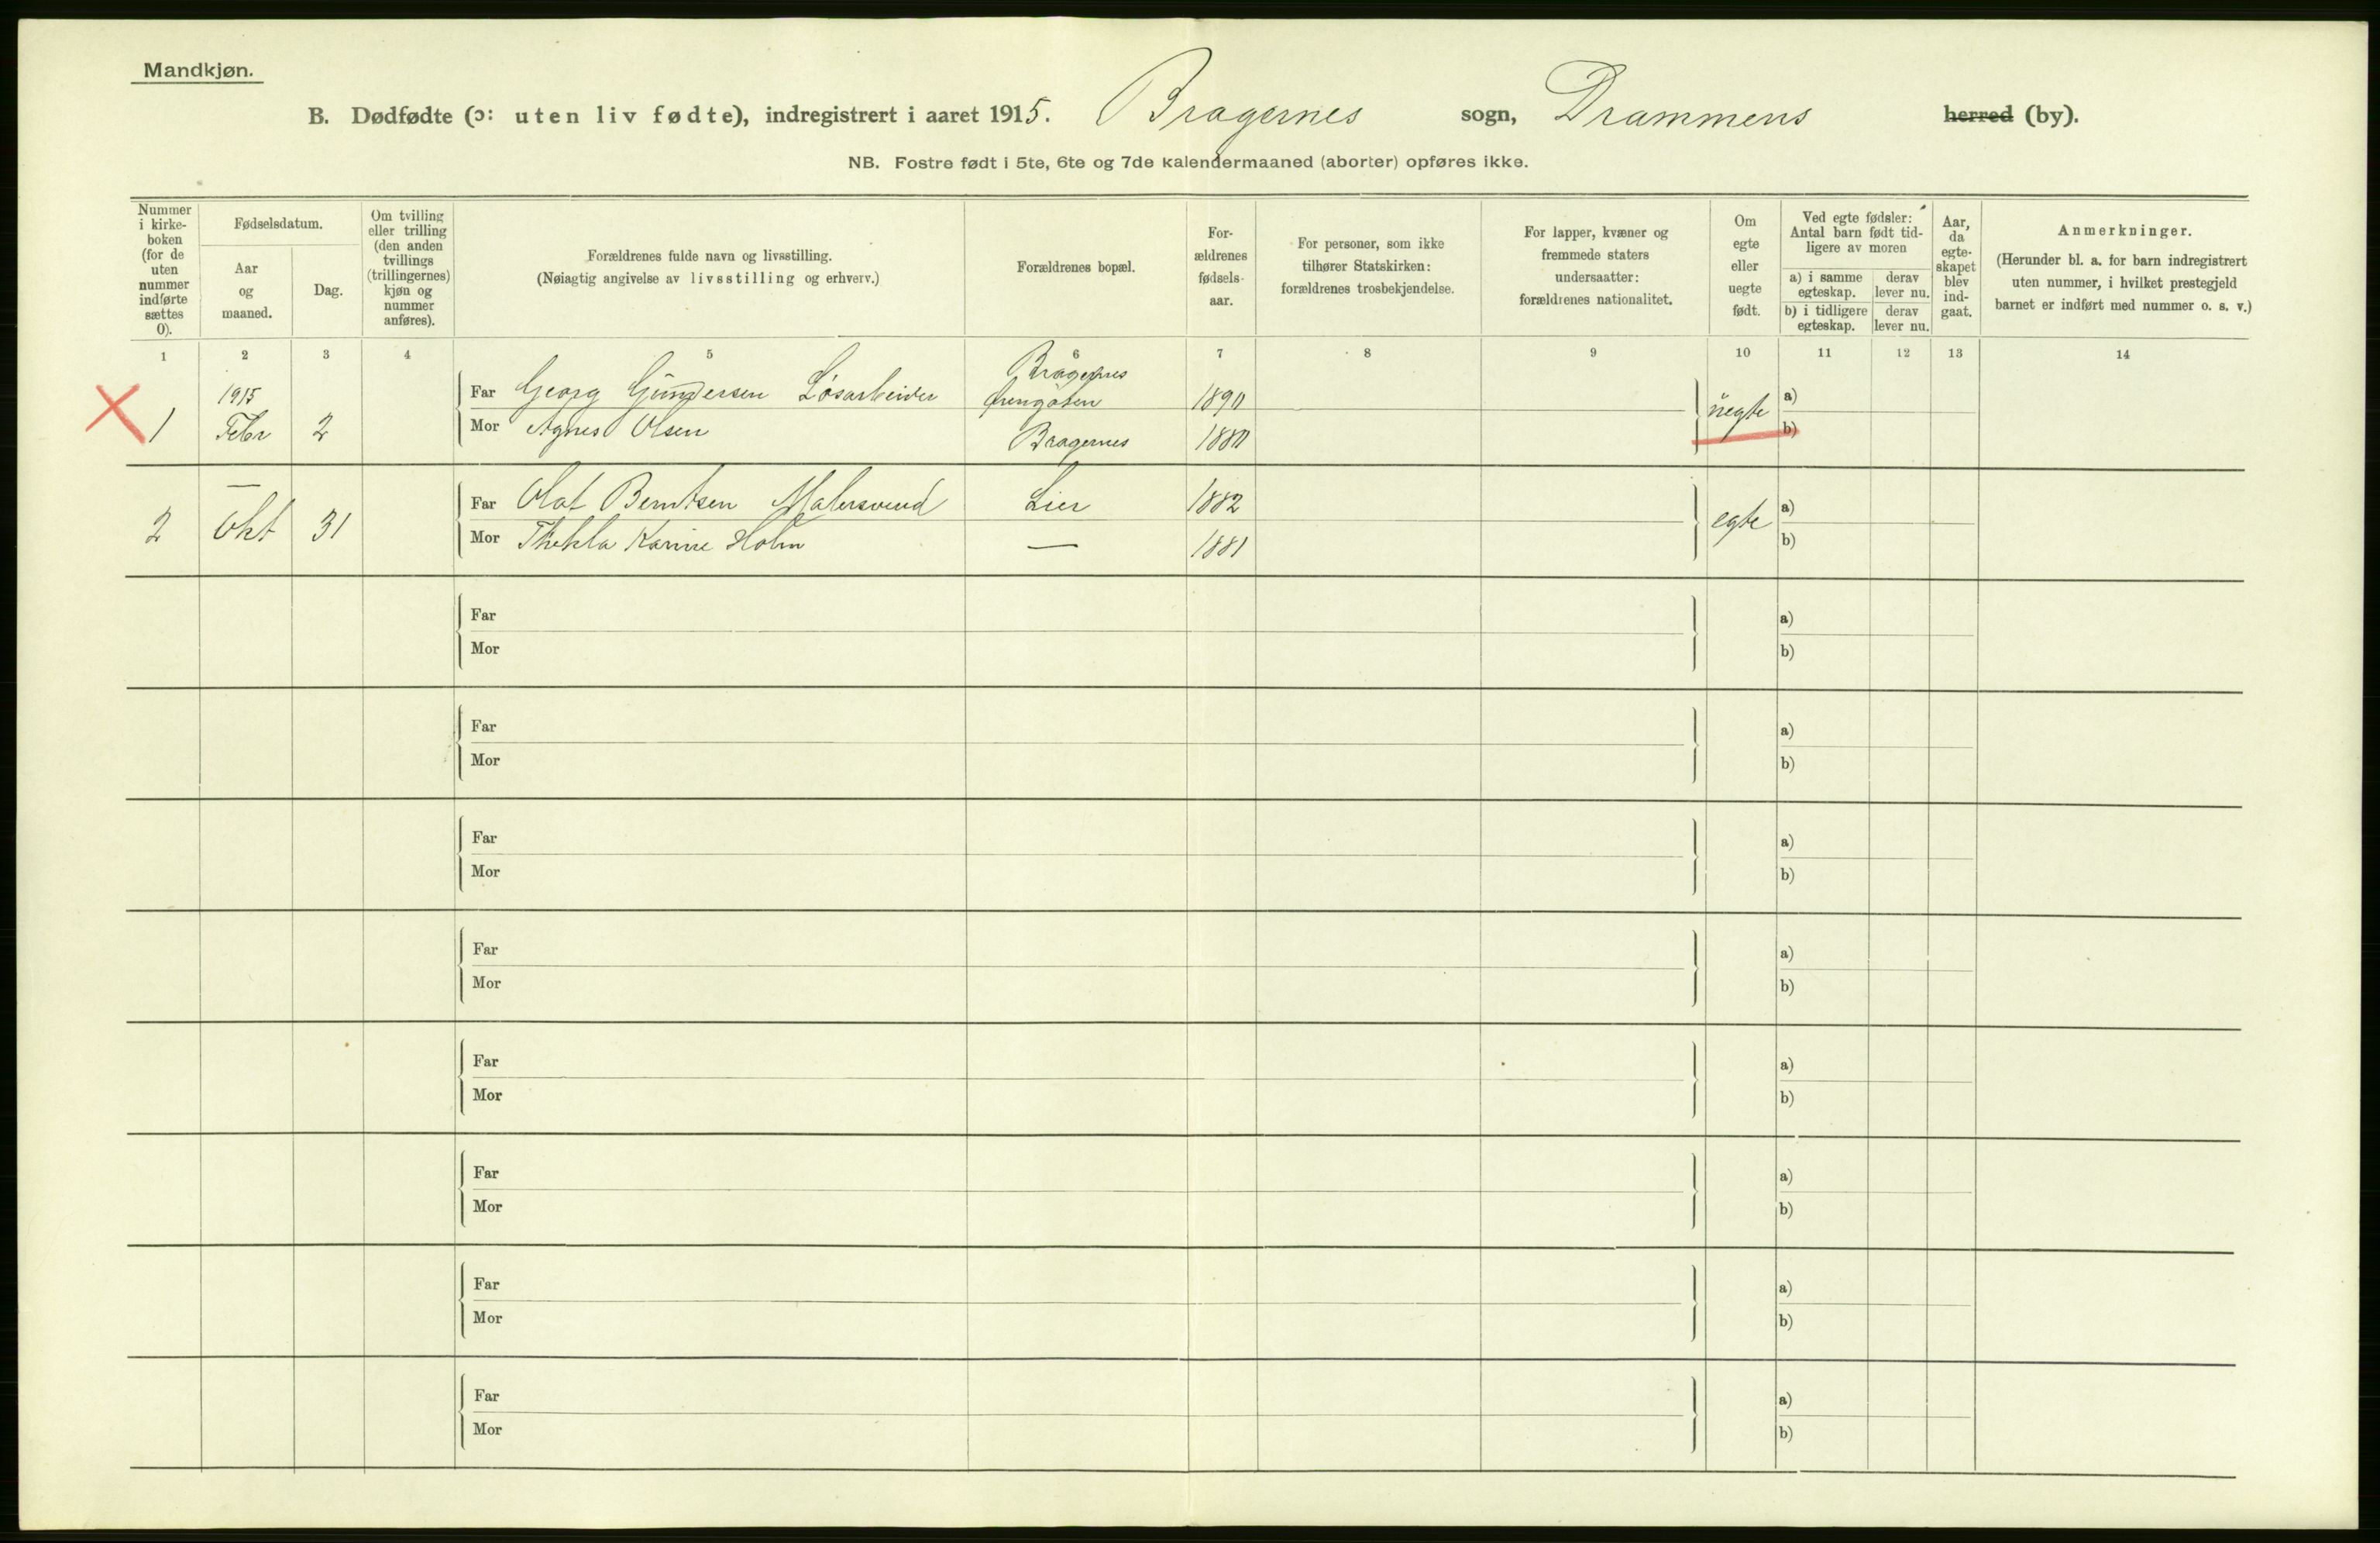 Mandkjøn.
B. Dødfødte (ɔ: uten liv fødte), indregistrert i aaret 1915. Bragernes sogn, Drammens herred (by).
NB. Fostre født i 5te, 6te og 7de kalendermaaned (aborter) opføres ikke.
Nummer i kirke- boken (for de uten nummer indførte sættes 0).
Fødselsdatum.
Aar og maaned.
Dag.
Om tvilling eller trilling (den anden tvillings (trillingernes) kjøn og nummer anføres).
Forældrenes fulde navn og livsstilling.
(Nøiagtig angivelse av livsstilling og erhverv.)
Forældrenes bopæl.
For- ældrenes fødsels- aar.
For personer, som ikke tilhører Statskirken: forældrenes trosbekjendelse.
For lapper, kvæner og fremmede staters undersaatter: forældrenes nationalitet.
Om egte eller uegte født.
Ved egte fødsler: Antal barn født tid- ligere av moren
a) i samme egteskap.
derav lever nu.
b) i tidligere egteskap.
derav lever nu.
Aar, da egte- skapet blev ind- gaat.
Anmerkninger.
(Herunder bl. a. for barn indregistrert uten nummer, i hvilket prestegjeld barnet er indført med nummer o. s. v.)
1 2 3 4 5 6 7 8 9 10 11 12 13 14
Bragernes
1915 Far Georg Gundersen Løsarbeider 1890 a)
1 Febr 2 Mor Agnes Olsen Bragernes 1880 uegte b)
— Far Olaf Berntsen Malersvend Lier 1882 a)
2 Okt 31 Mor Thekla Karine Holm — 1881 egte b)
Far a)
Mor b)
Far a)
Mor b)
Far a)
Mor b)
Far a)
Mor b)
Far a)
Mor b)
Far a)
Mor b)
Far a)
Mor b)
Far a)
Mor b)